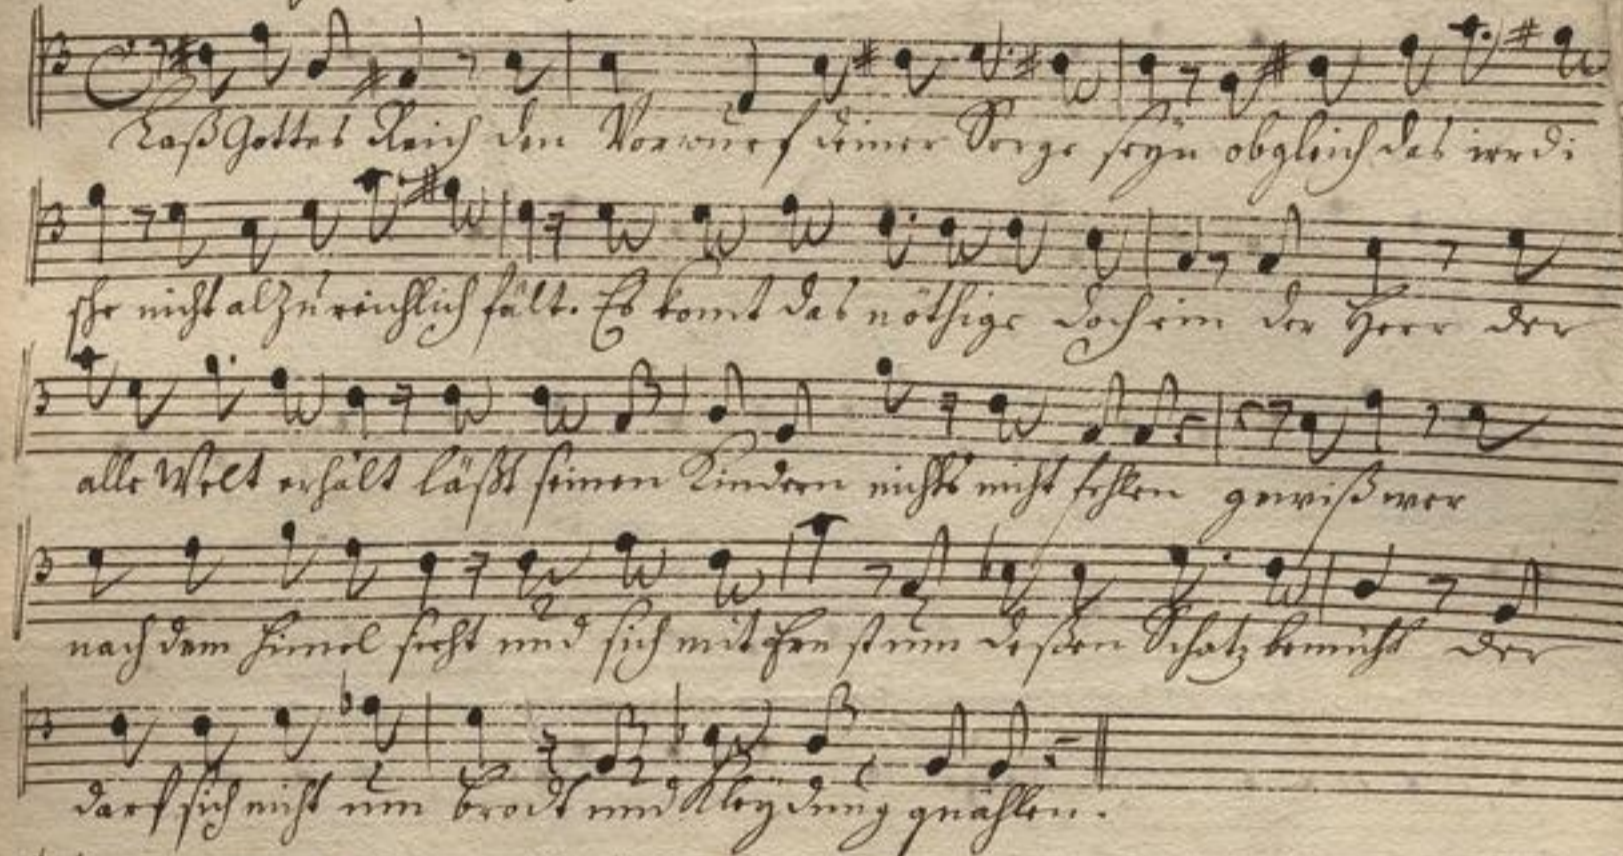 Laß Gottes Reich den Vorwurf deiner Sorge seyn obgleich das irrdi
sche nicht alzureichlich fält. Es komt das nöthige doch ein der Herr der
alle Welt erhält läßt seinen Kindern nichts nicht fehlen gewiß wer
nach dem Himel sieht und sich mit Ernst um deßen Schatz bemüht der
darf sich nicht um Brodt und Kleydung quählen.